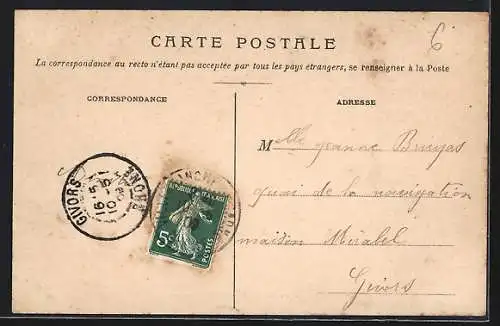 6
CARTE POSTALE
La correspondance au recto n'étant pas acceptée par tous les pays étrangers, se renseigner à la Poste
CORRESPONDANCE
ADRESSE
Melle Jeanne Bruyas
quai de la navigation
maison Mirabel
Givors
GIVORS
RHONE
16-5
5
10
REPUBLIQUE FRANÇAISE
5c
POSTES